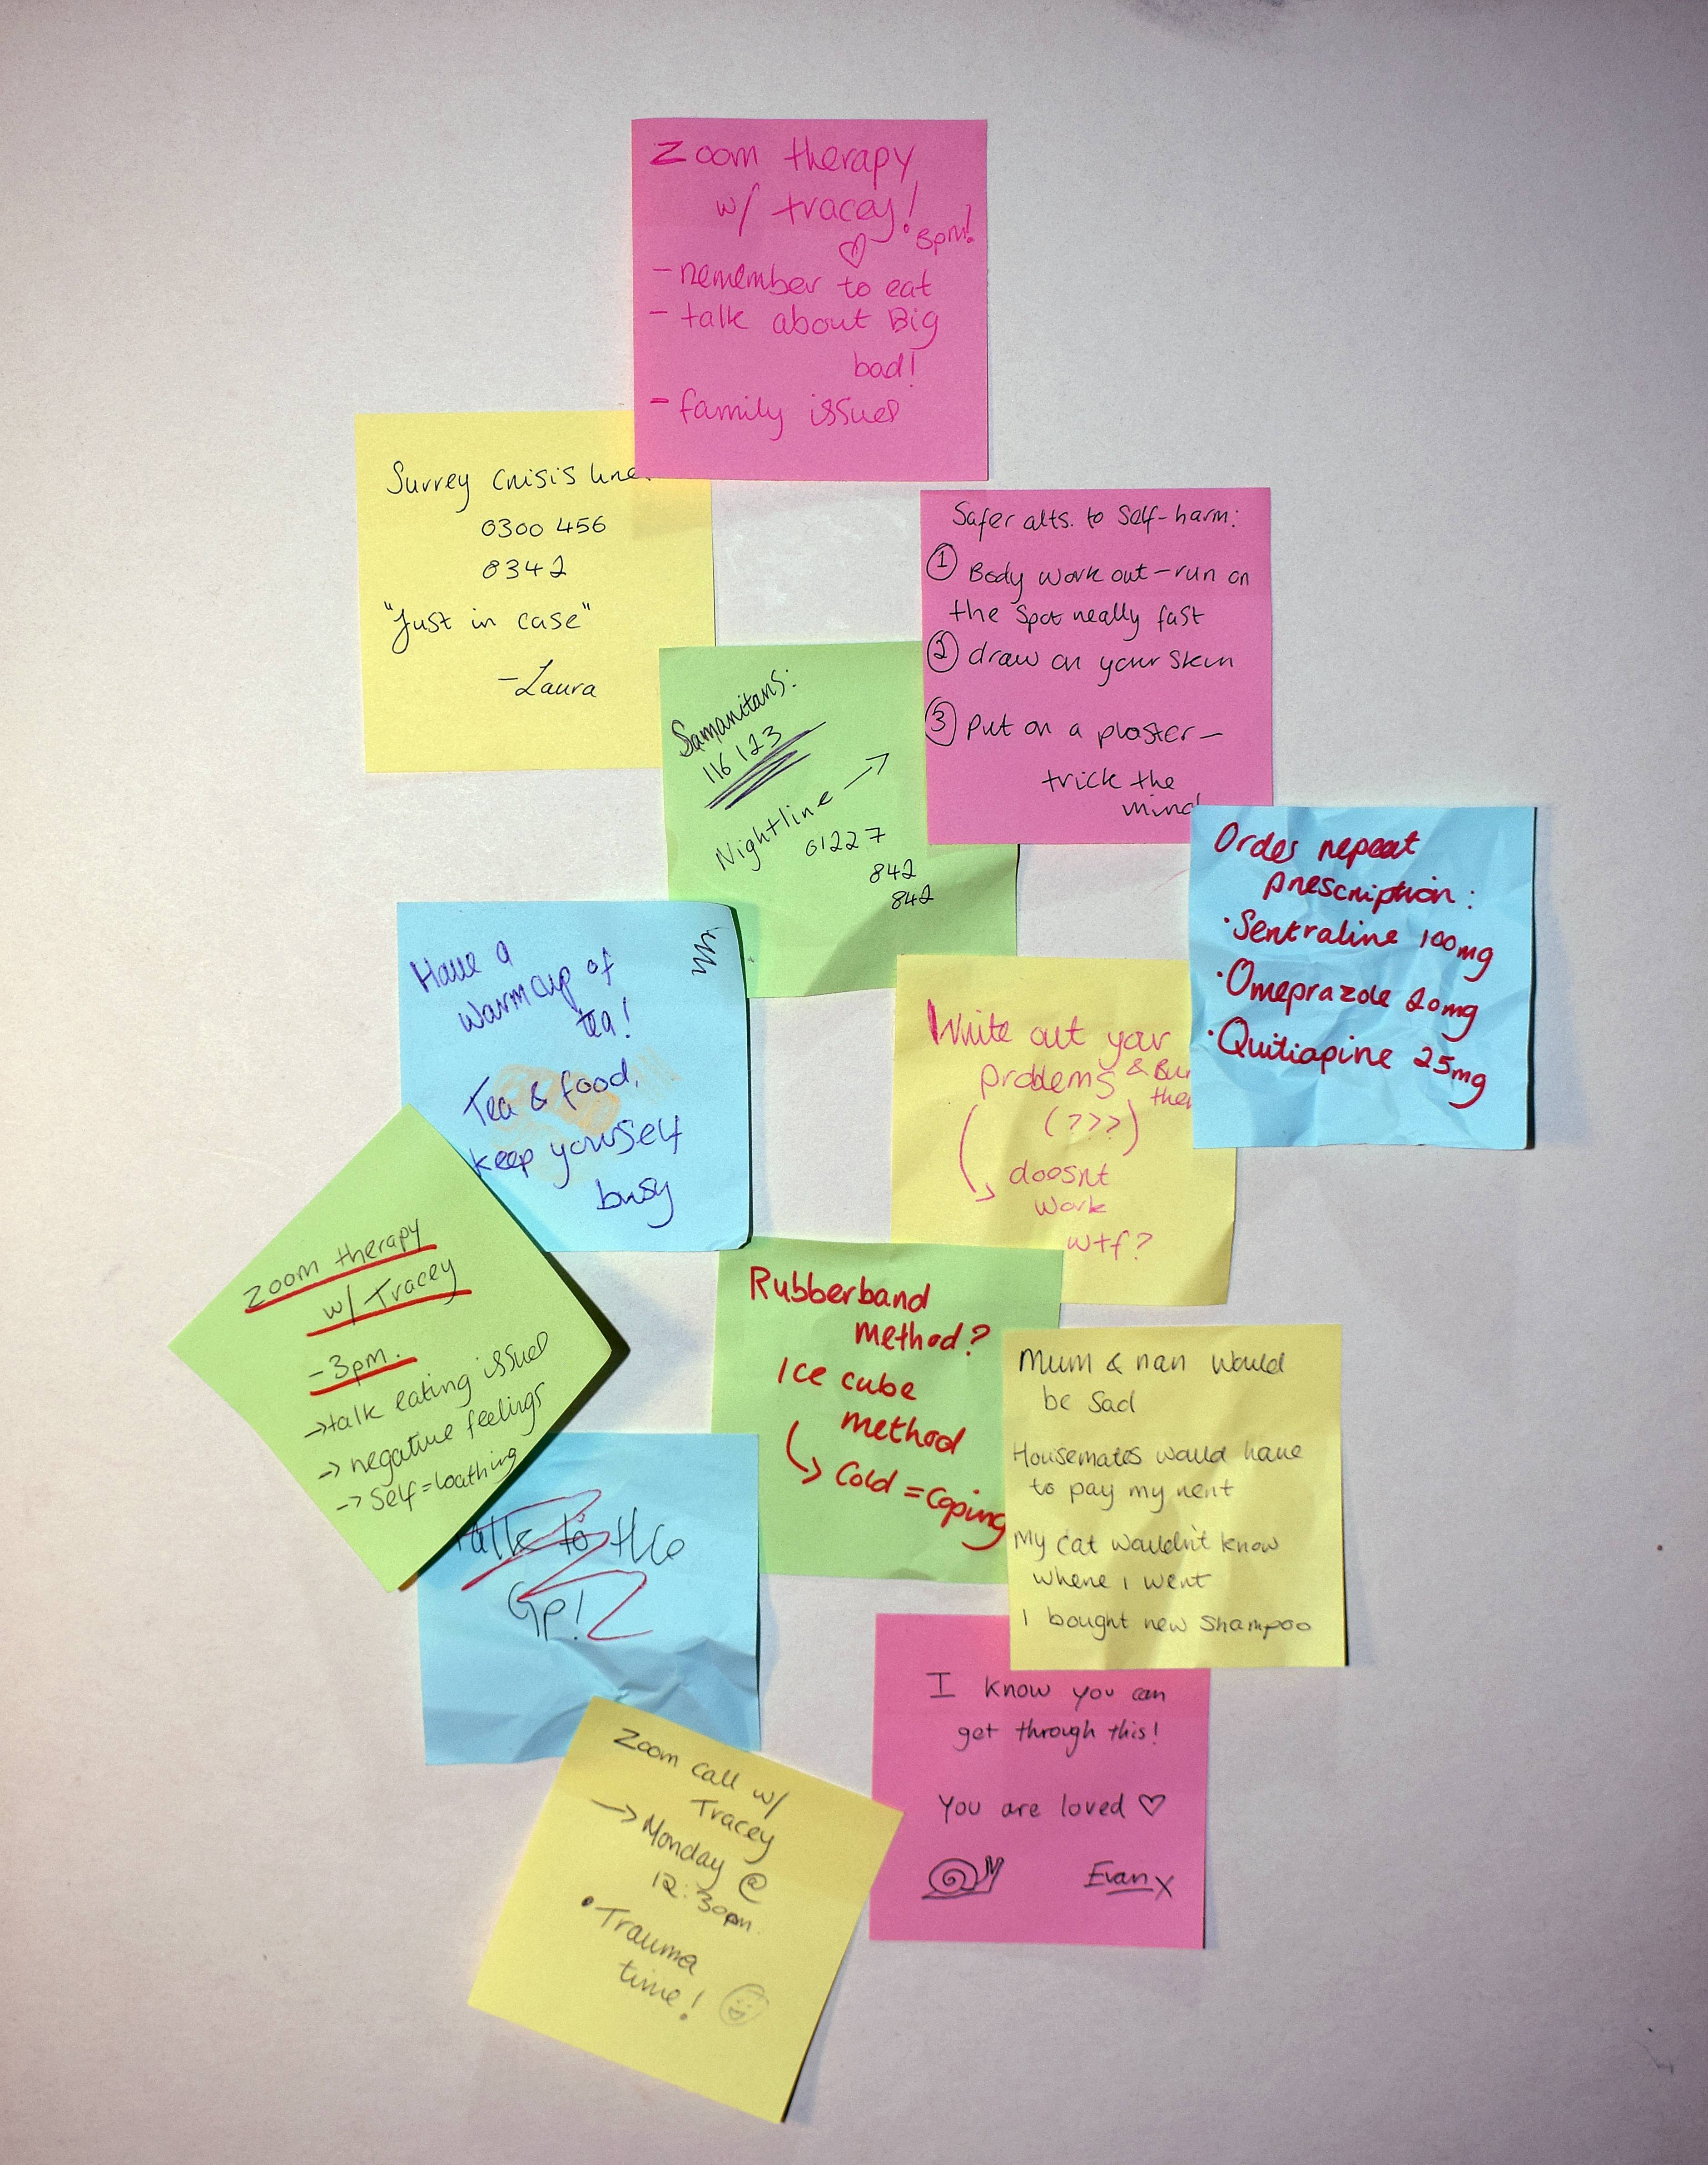 Zoom therapy
w/ tracey!
8pm!
- remember to eat
- talk about Big
bad!
- family issues
Surrey crisis line
0300 456
8342
"Just in case"
- Laura
Safer alts. to Self-harm:
① Body work out - run on
the spot really fast
② draw on your skin
③ Put on a plaster -
trick the
mind
Samaritans:
116 123
Nightline →
01227
842
842
Order repeat
prescription:
• Sertraline 100mg
• Omeprazole 20mg
• Quitiapine 25mg
Have a
warm cup of
tea!
Tea & food,
keep yourself
busy
Write out your
problems &
(???)
doesnt
work
wtf?
Zoom therapy
w/ Tracey
- 3pm.
→ talk eating issues
→ negative feelings
→ Self=loathing
Rubberband
method?
Ice cube
method
↳ Cold = Coping
Mum & nan would
be sad
Housemates would have
to pay my rent
My cat wouldn't know
where I went
I bought new shampoo
talk to the
GP!
I know you can
get through this!
You are loved ♡
Evan x
Zoom call w/
Tracey
→ Monday @
12:30pm.
• Trauma
time!